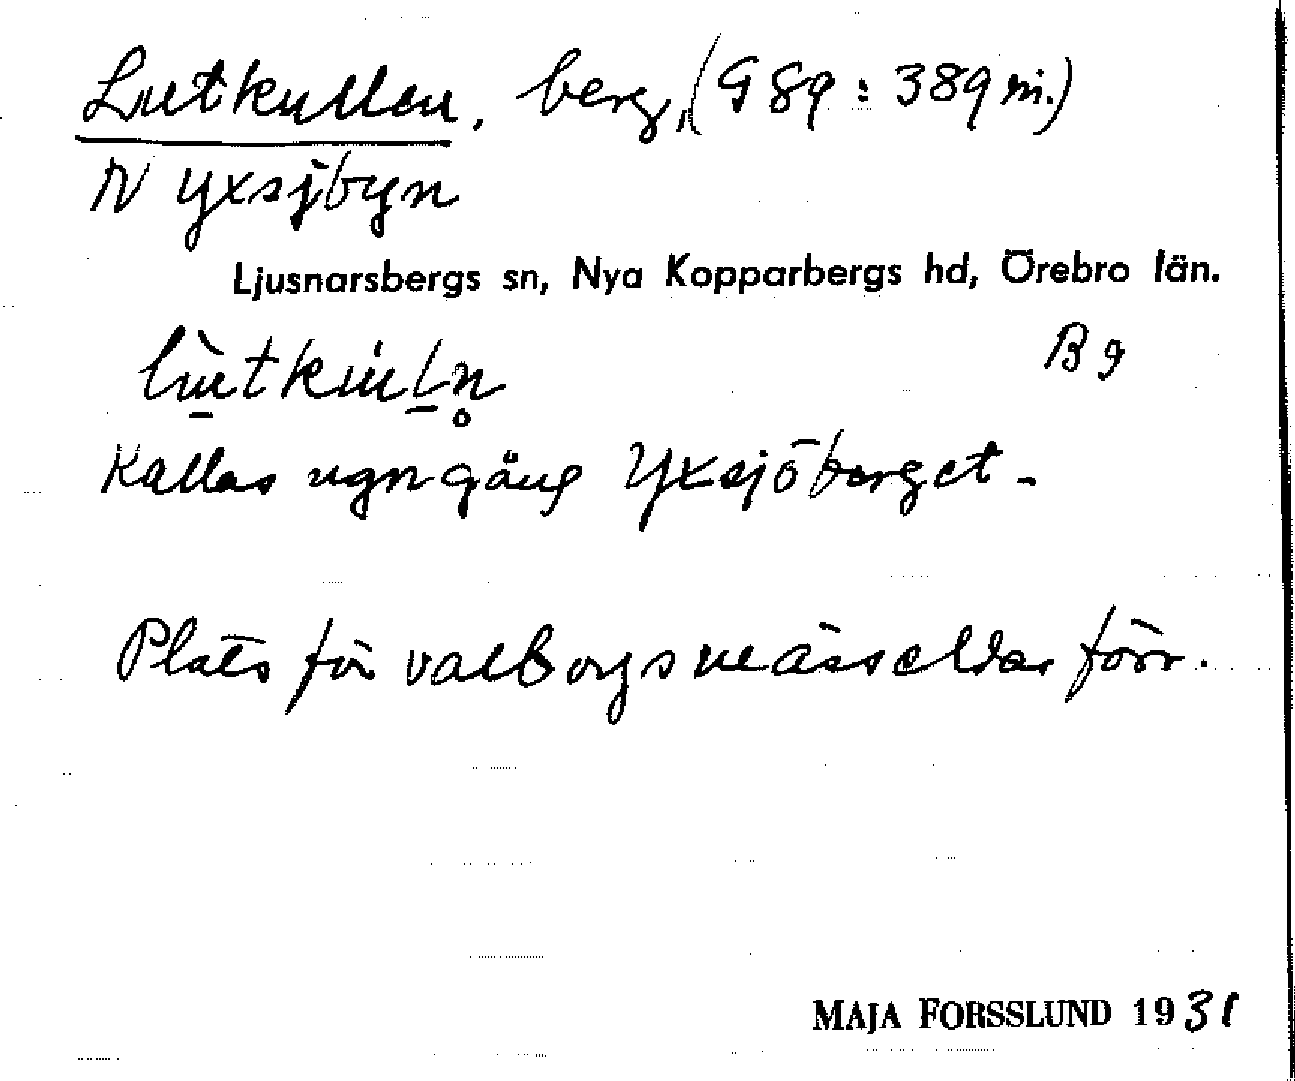 Lutkullen, berg, (G 89 : 389 m.)
N Yxsjbyn
Ljusnarsbergs sn, Nya Kopparbergs hd, Örebro län.
B 9
Kallas ngn gång Yxsjöberget -
Plats för valborgsmässeldar förr.
MAJA FORSSLUND 1931